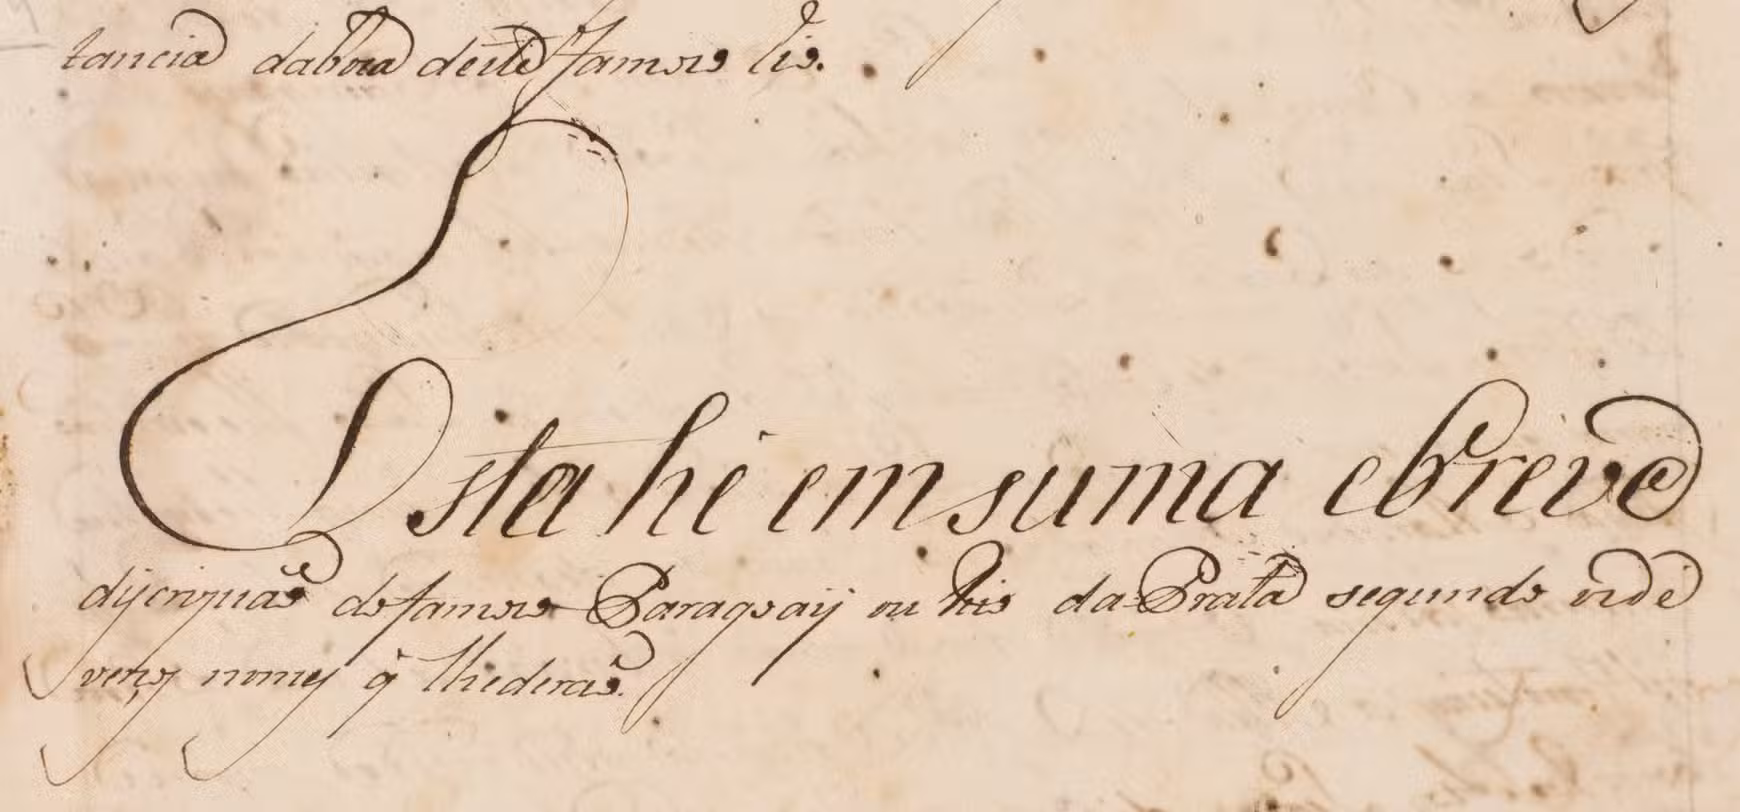 tancia daboca deste famozo Rio.
Esta hé em suma ebreve
discripcaõ do famozo Paragoaij ou Rio da Prata segundo os dì
versos nomes q̃ lhederaõ.